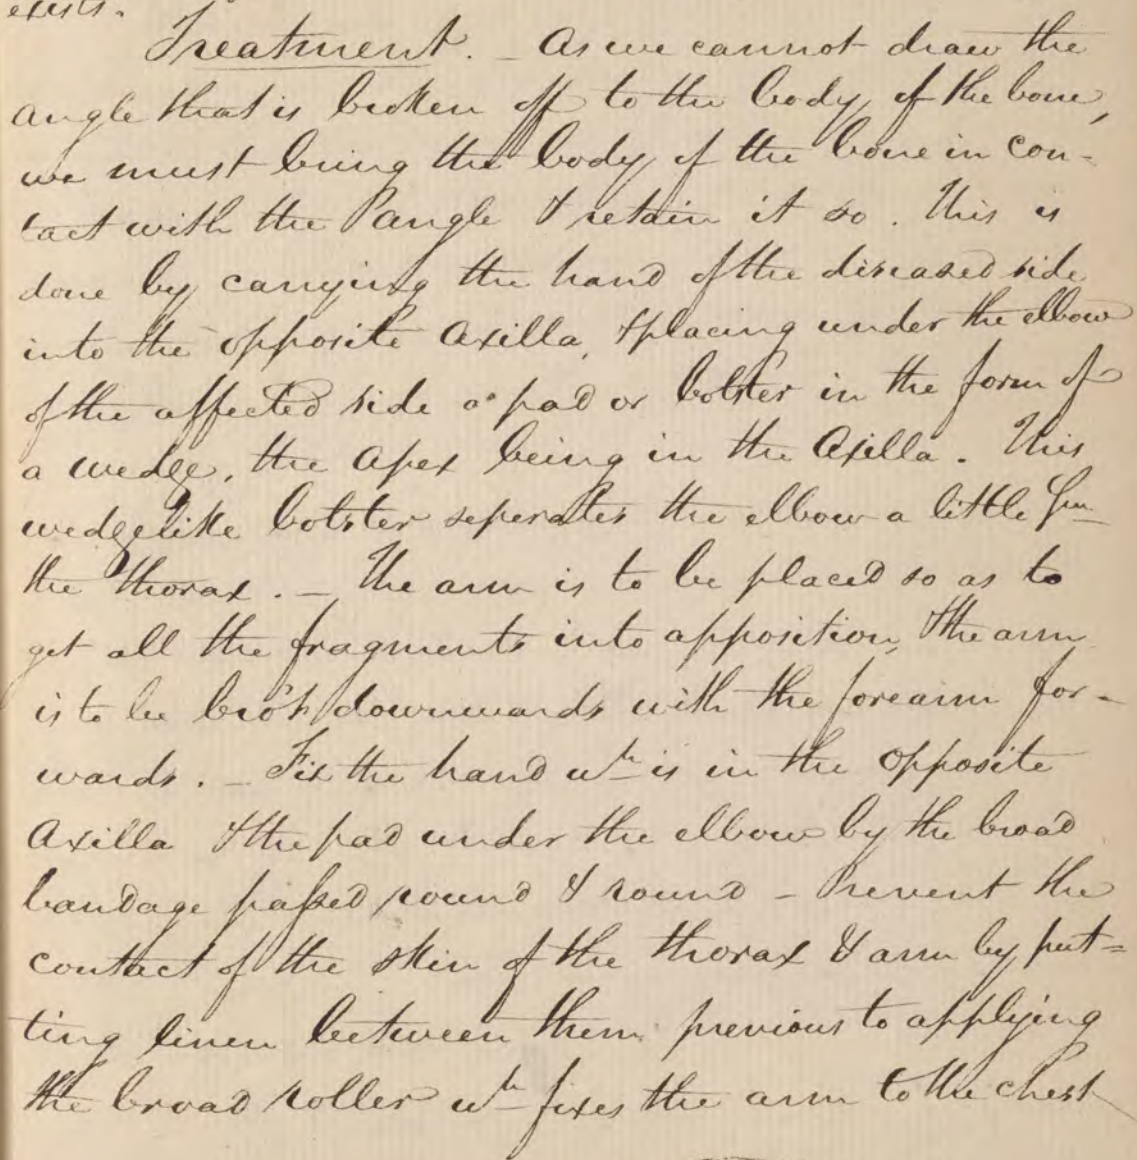 exists.
Treatment. - As we cannot draw the
angle that is broken off to the body of the bone,
we must bring the body of the bone in con-
tact with the angle & retain it so. This is
done by carrying the hand of the diseased side
into the opposite Axilla, & placing under the elbow
of the affected side a pad or bolster in the form of
a wedge, the Apex being in the Axilla. This
wedgelike bolster seperates the elbow a little fm
the thorax. - The arm is to be placed so as to
get all the fragments into apposition, & the arm
is to be bro't downwards with the forearm for-
wards. - Fix the hand wh is in the opposite
Axilla & the pad under the elbow by the broad
bandage passed round & round - Prevent the
contact of the skin of the thorax & arm by put=
ting linen between them previous to applying
the broad roller wh fixes the arm to the chest